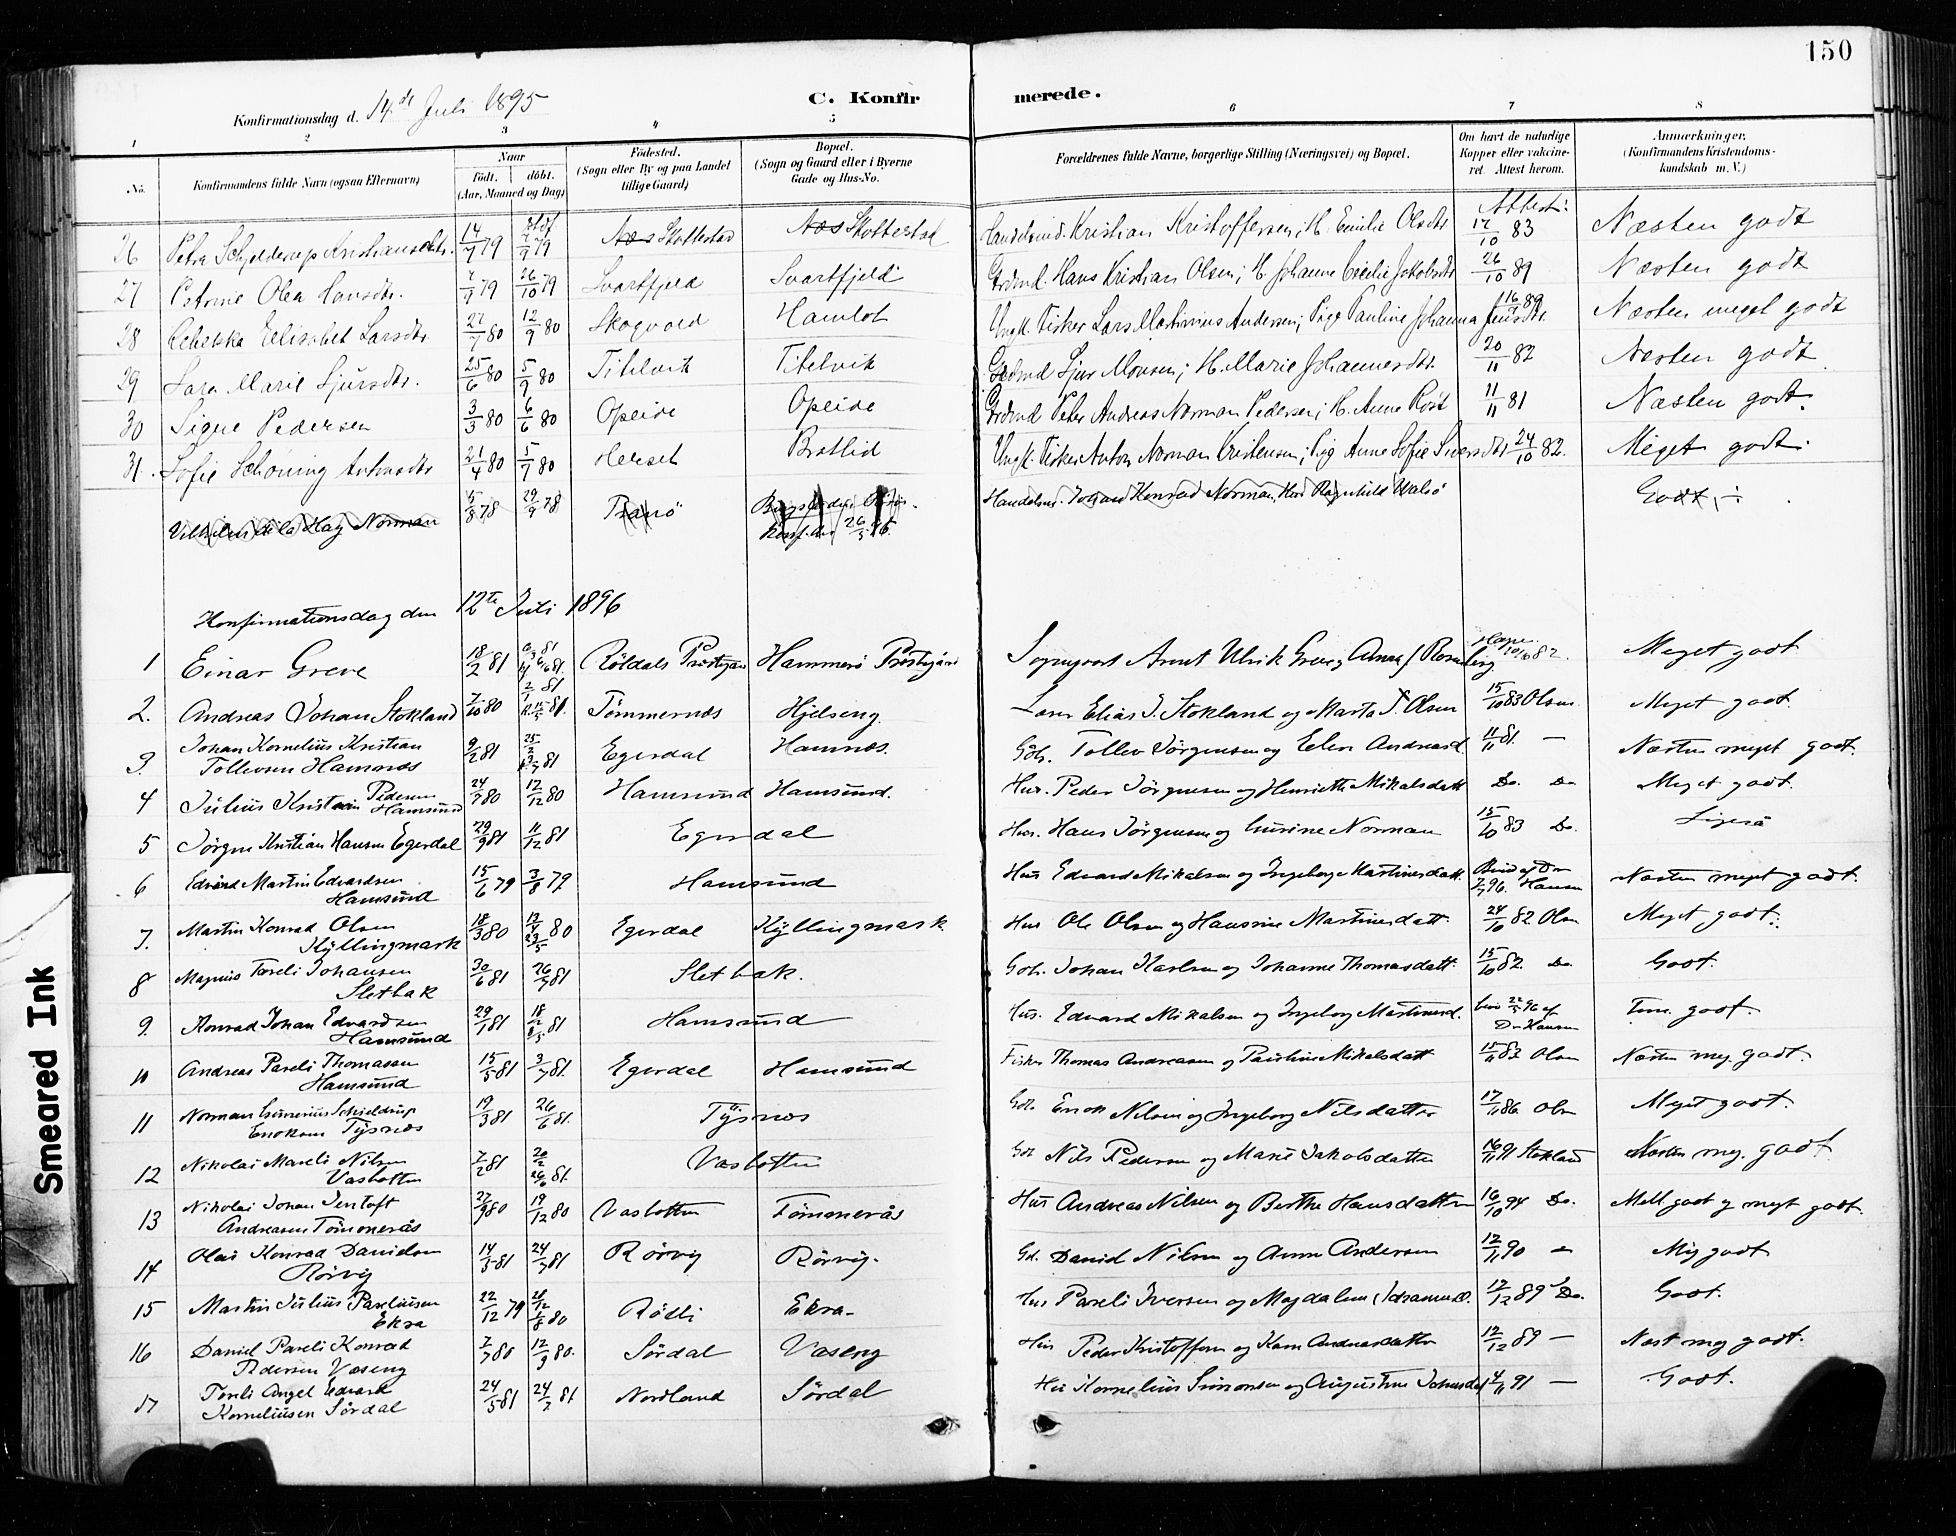 150
Konfirmationsdag d. 14de Juli 1895
C. Konfirmerede.
1 2 3 4 5 6 7 8
No.
Konfirmandens fulde Navn (ogsaa Efternavn)
Naar
født. døbt.
(Aar, Maaned og Dag)
Fødested.
(Sogn eller By og paa Landet tillige Gaard)
Bopæl.
(Sogn og Gaard eller i Byerne Gade og Hus-No.
Forældrenes fulde Navne, borgerlige Stilling (Næringsvei) og Bopæl.
Om havt de naturlige Kopper eller vakcineret. Attest herom.
Anmærkninger.
(Konfirmandens Kristendomskundskab m. V.)
Attest:
26 Petra Schjelderup Kristiansdtr. 14/7 79 7/9 79 Næs Skottestad Næs Skottestad Handelsmd. Kristian Kristoffersen; H. Emilie Olsdtr 17/10 83 Næsten godt
27 Petrine Olea Hansdtr. 7/9 79 26/10 79 Svartfjeld Svartfjeld Grdmd. Hans Kristian Olsen; H. Johanne Cecilie Jakobsdtr 26/10 89 Næsten godt
28 Rebekka Elisabet Larsdtr 27/7 80 12/9 80 Skogvold Hamlot Ungk. Fisker Lars Martinius Andersen; Pige Pauline Johanna Jensdtr. 16/9 89 Næsten meget godt
29 Sara Marie Sjursdtr. 25/6 80 5/9 80 Tilelvik Tilelvik Grdmd Sjur Monsen; H. Marie Johannesdtr. 20/11 82 Næsten godt
30 Signe Pedersen 3/3 80 6/6 80 Opeide Opeide Grdmd Peter Andreas Norman Pedersen; H. Anne Røst 11/11 81 Næsten godt.
31. Sofie Schöning Antonsdtr 21/4 80 5/9 80 Herset Bratlid Ungk. Fisker Anton Norman Kristensen; Pig Anne Sofie Siversdtr 24/10 82. Meget godt.
Vilhelm de la Hay Norman 5/8 78 29/9 78 Tranö Handelsm. Konrad Norman, Hed Ragnhild Walsö Godt ÷
Konfirmationsdag den 12te Juli 1896
1 Einar Greve 18/2 81 Röldals Præstgård Hammerö Præstegård Sogneprest Arnt Ulrik Greve, Anna J Rosenberg Meget godt.
2. Andreas Johan Stokland 7/10 80 Tömmernes Hjelseng Lærer Elias J. Stokland og Marta J. Olsen 15/10 83 Olsen. Meget godt.
3. Johan Kornelius Kristian
Tollevsen Hamnæs 9/2 81 Egerdal Hamnæs. Gbr. Tollev Jörgensen og Ellen Andreasd. 11/11 81. — Næsten meget godt.
4 Julius Kristian Pedersen
Hamsund 24/7 80 12/12 80 Hamsund Hamsund. Hus. Peder Jörgensen og Henriette Mikalsdatt Do. Do Meget godt.
5 Jörgen Kristian Hansen Egerdal 29/9 81 11/12 81 Egerdal Hus. Hans Jörgensen og Gurine Norman 15/10 83 Do. Ligeså
6 Edvard Martin Edvardsen
Hamsund 15/6 79 3/8 79 Hamsund Hus Edvard Mikalsen og Ingeborg Martinusdatt. Næsten meget godt.
7. Martin Konrad Olsen
Kyllingmark 18/3 80 Egerdal Kyllingmark Hus Ole Olsen og Hansine Martinusdatt. 24/10 82 Olsn Meget godt.
8 Magnus Pareli Johansen
Sletbak 30/6 81 26/7 81 Sletbak. Gbr. Johan Karlsen og Johanne Thomasdatt. 15/10 82. Do Godt.
9. Konrad Johan Edvardsen
Hamsund 29/1 81 Hamsund Hus. Edvard Mikalsen og Ingeborg Martinusd. bevis 22/5 96 af
Dr Hansen Tem. godt.
10 Andreas Pareli Thomasen
Hamsund 15/5 81 3/7 81. Egerdal Hamsund Fisker Thomas Andreasen og Pauline Mikalsdatt 15/11 82 Olsn Næsten meg. godt.
11 Norman Gunerius Schjeldrup
Enoksen Tysnes 19/3 81 26/6 81. Tysnes Gbr. Enok Nilsen og Ingeborg Nilsdatter 17/11 86 Olsn Meget godt.
12 Nikolai Mareli Nilsen
Vasbotten 7/2 81 Vasbotten Gbr Nils Pedersen og Marie Jakobsdatter 16/11 91 Stokland Næsten meg. godt
13 Nikolai Johan Jentoft
Andreasen Tömmerås 27/9 80 19/12 80 Vasbotten Tömmerås Hus Andreas Nilsen og Berthe Hansdatter 16/10 94 Do. Mell. godt og meget godt.
14 Olai Konrad Danielsen
Rörvig 14/5 81 24/7 81 Rörvig Rörvig. Gd. Daniel Nilsen og Anne Andersen 12/11 90 — Meg godt
15 Martin Julius Pareliusen
Ekra 22/12 79 Rödli Ekra. Hus Pareli Iversen og Magdalena Johannesd. 12/12 89 Do. Godt.
16 Daniel Pareli Konrad
Pedersen Vaseng 7/7 80 12/9 80. Sördal Vaseng Hus Peder Kristoffersen og Karen Andreasdatter 12/12 89 — Næst meg godt.
17 Pareli Angel Edvard
Korneliusen Sördal 24/5 81 24/7 81 Nordland Sördal Hus Kornelius Simonsen og Augustine Johnsdat 4/11 91 — Godt.
Smeared Ink